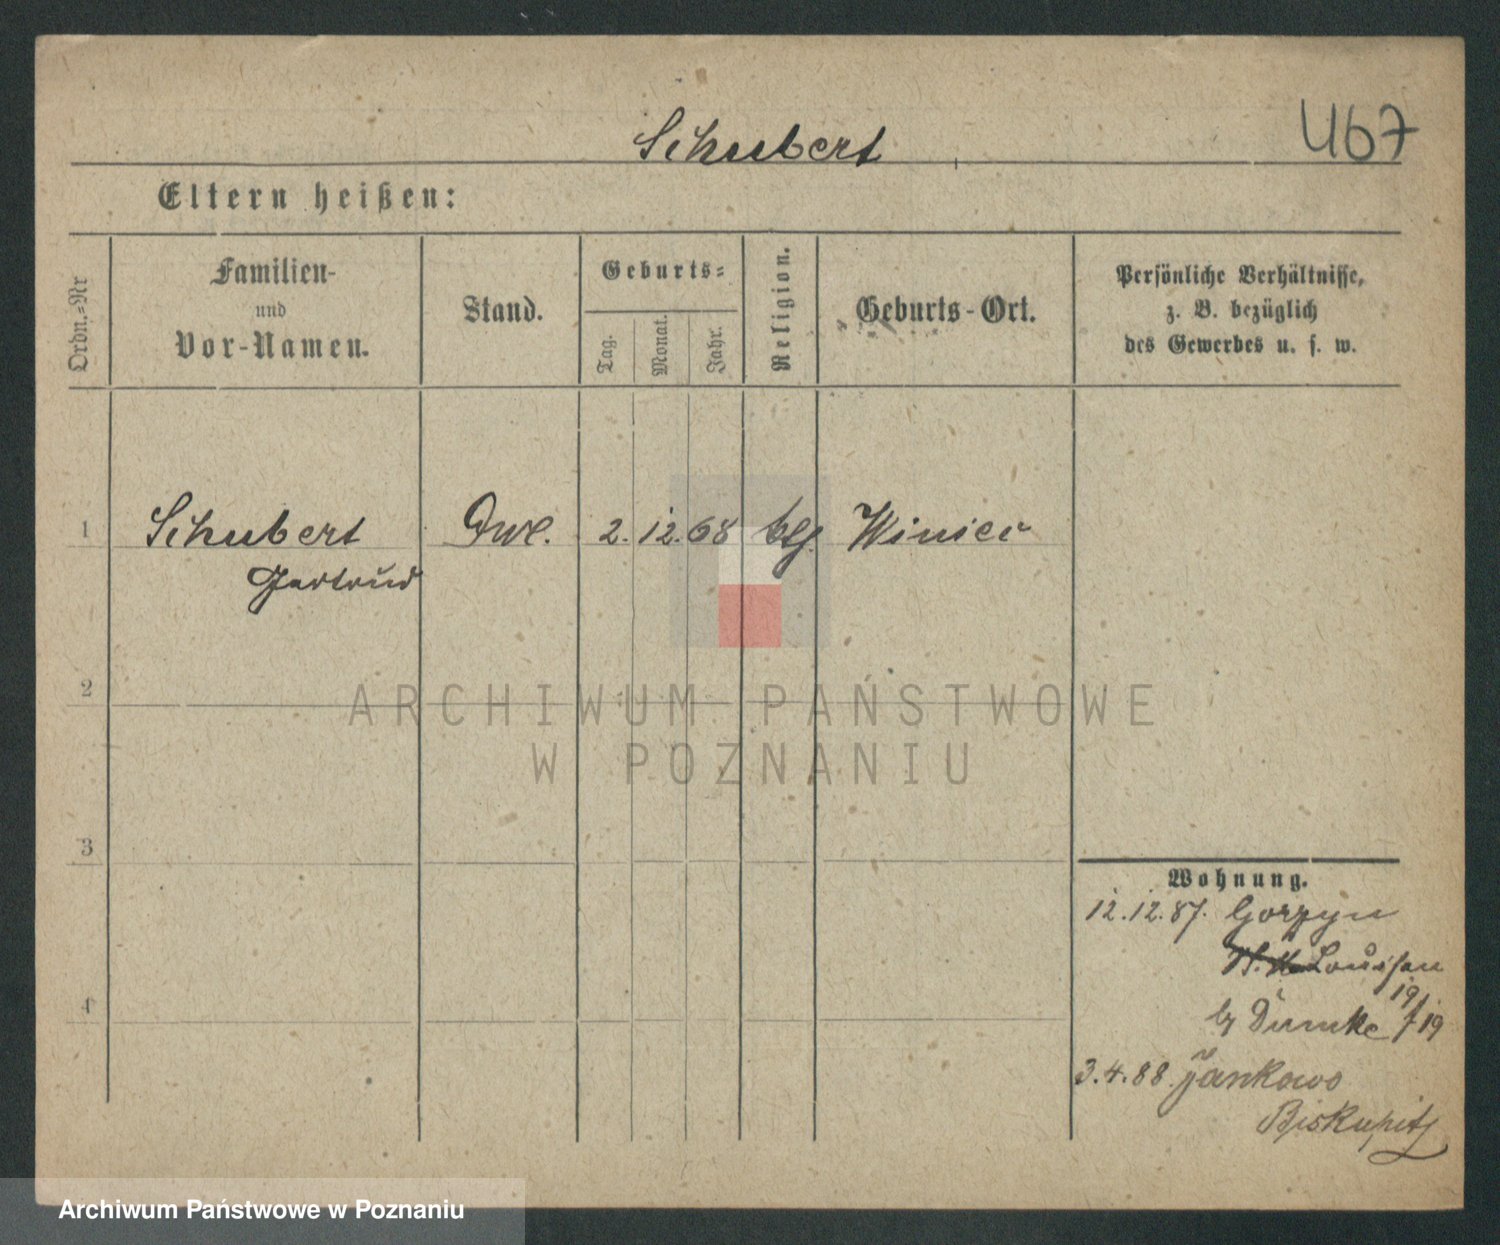 Schubert
467
Eltern heißen:
Ordn.-Nr
Familien-
und
Vor-Namen.
Stand.
Geburts-
Tag.
Monat.
Jahr.
Religion.
Geburts-Ort.
Persönliche Verhältnisse,
z. B. bezüglich
des Gewerbes u. s. w.
1
Schubert
Gertrud
2. 12. 68
Winiec
2
ARCHIWUM PAŃSTWOWE
W POZNANIU
3
4
Wohnung.
12.12.87. Gorzyn
Louisen
19/
b/ Dumke 19
3.4.88. Jankowo
Biskupitz
Archiwum Państwowe w Poznaniu